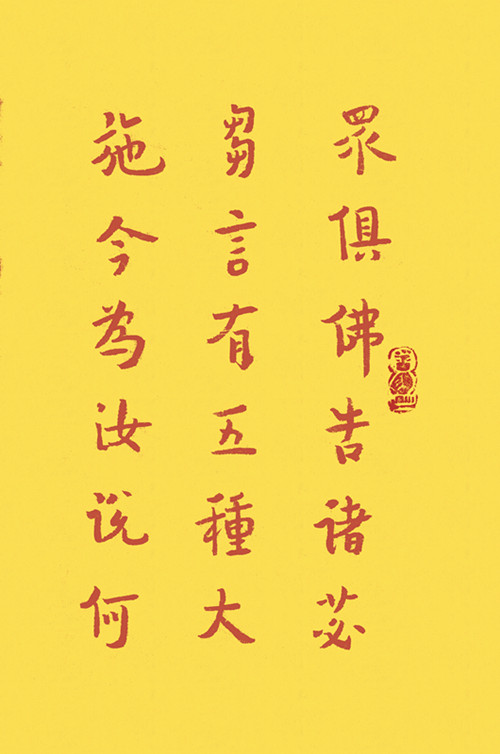 眾俱佛告诸苾
芻言有五種大
施今為汝説何